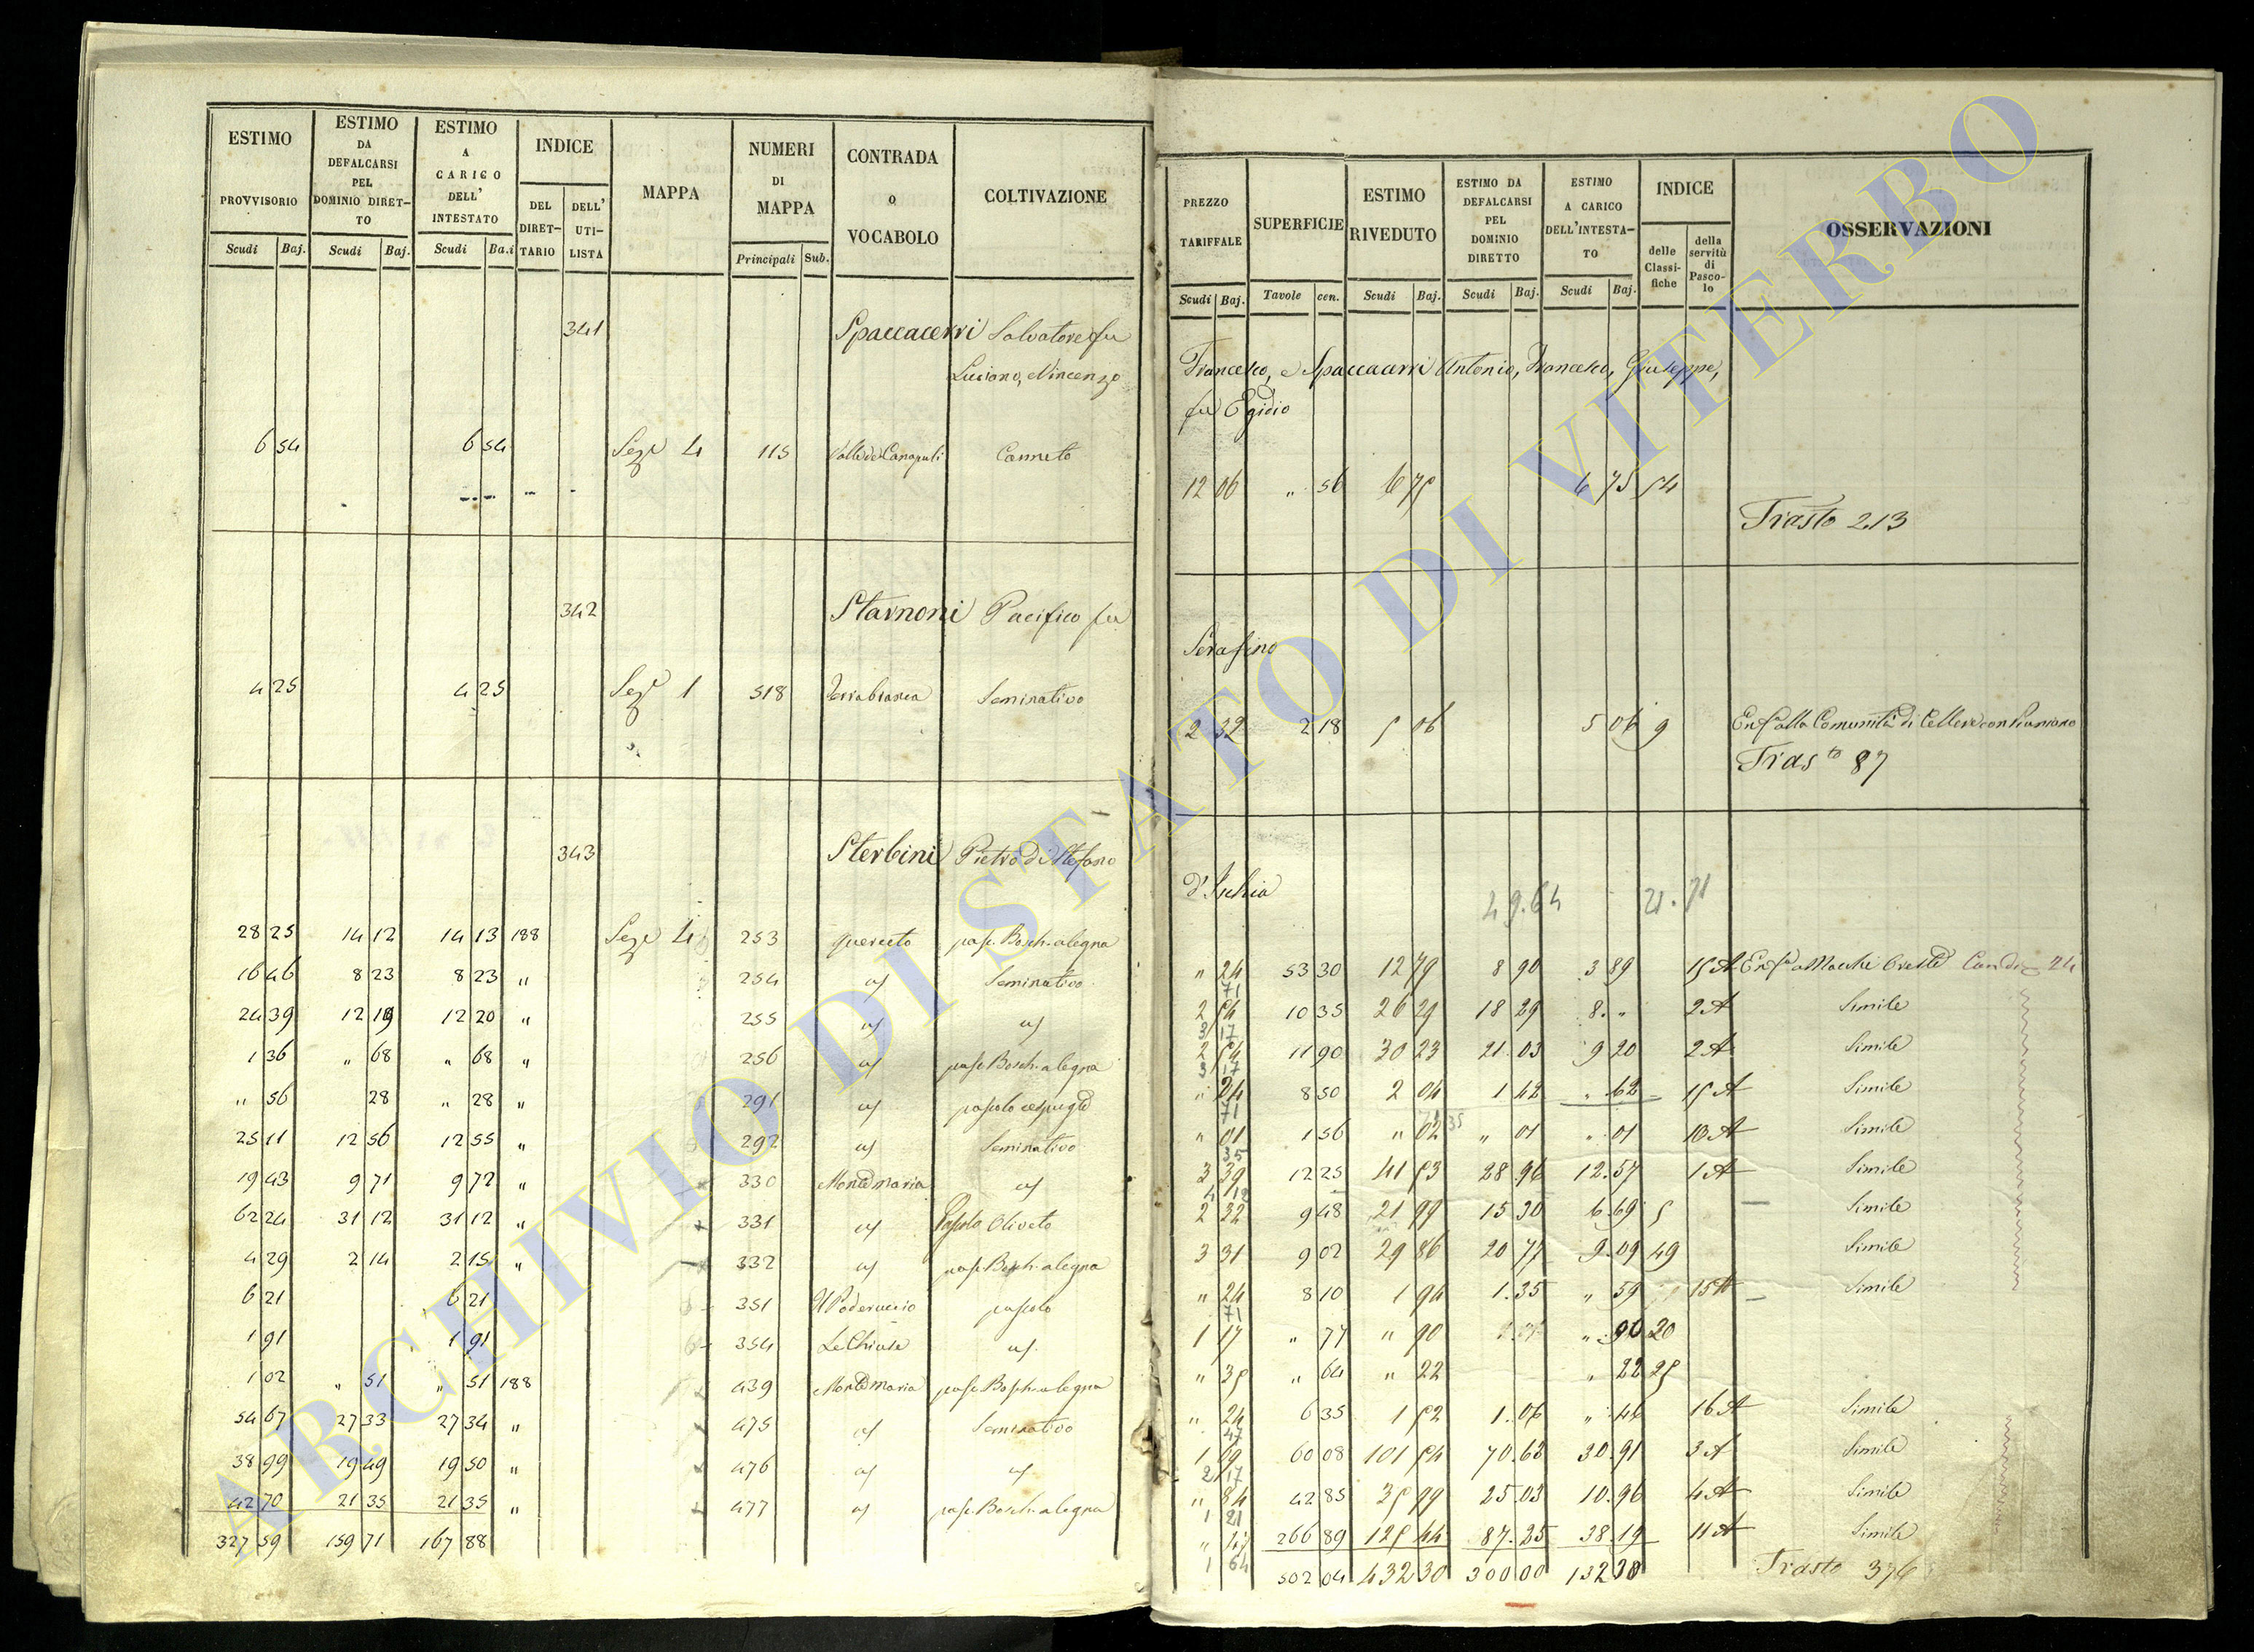 ESTIMO PROVVISORIO Scudi Baj.
ESTIMO DA DEFALCARSI PEL DOMINIO DIRET-TO Scudi Baj.
ESTIMO A CARICO DELL' INTESTATO Scudi Ba.i
INDICE DEL DIRET-TARIO DELL' UTI-LISTA
MAPPA
NUMERI DI MAPPA Principali Sub.
CONTRADA O VOCABOLO
COLTIVAZIONE
PREZZO TARIFFALE Scudi Baj.
SUPERFICIE Tavole cen.
ESTIMO RIVEDUTO Scudi Baj.
ESTIMO DA DEFALCARSI PEL DOMINIO DIRETTO Scudi Baj.
ESTIMO A CARICO DELL'INTESTA-TO Scudi Baj.
INDICE delle Classi-fiche della servitù di Pasco-lo
OSSERVAZIONI
341 Spaccacerri Salvatore fu
Luciano, e Vincenzo
Francesco, e Spaccacerri Antonio, Francesco, Giuseppe,
fu Egidio
6 54 6 54 Sez.e 4 115 Canneto
12 06 " 56 6 75 6 75 54
Trasto 213
342 Starnoni Pacifico fu
Serafino
4 25 4 25 Sez.e 1 518 Terrabianca Seminativo
2 32 2 18 5 06 5 06 9 Enf.a alla Comunità di Cellere con Pianiano
Tras.to 87
343 Sterbini Pietro di Stefano
d'Ischia
49.64 21.71
28 25 14 12 14 13 188 Sez.e 4 253 querceto pasc. Bosch. a legna
" 24 53 30 12 79 8 90 3 89 15 A
71
16 46 8 23 8 23 " 254 Seminativo
2 54 10 35 26 29 18 29 8. " 2 A Simile
3 17
24 39 12 19 12 20 " 255
2 54 11 90 30 23 21 03 9 20 2 A Simile
3 17
1 36 " 68 " 68 " 256 pasc. Bosch. a legna
" 24 8 50 2 04 1 42 " 62 15 A Simile
71
" 56 28 " 28 " 291
" 01 1 56 " 02 " 01 " 01 10 A Simile
35
25 11 12 56 12 55 " 292 Seminativo
3 39 12 25 41 53 28 96 12.57 1 A Simile
19 43 9 71 9 72 " 330 Monte maria
2 32 9 48 21 99 15 30 6 69 5 Simile
62 24 31 12 31 12 " 331 Pascolo Oliveto
3 31 9 02 29 86 20 77 9.09 49 Simile
4 29 2 14 2 15 " 332 pasc. Bosch. a legna
" 24 8 10 1 94 1.35 " 59 15 A Simile
71
6 21 6 21 351 Il Poderuccio pascolo
1 17 " 77 " 90 " 90 20
1 91 1 91 354 Le Chiuse
" 35 " 64 " 22 " 22 25
1 02 " 51 " 51 188 439 Monte maria pasc. Bosch. a legna
" 24 6 35 1 52 1.06 " 46 16 A Simile
47
54 67 27 33 27 34 " 475 Seminativo
1 69 60 08 101 54 70.63 30.91 3 A Simile
2 17
38 99 19 49 19 50 " 476
" 84 42 85 35 99 25.03 10.96 4 A Simile
1 21
42 70 21 35 21 35 " 477 pasc. Bosch. a legna
" 47 266 89 125 44 87.25 38.19 11 A Simile
1 64
327 59 159 71 167 88
502 04 432 30 300 00 132 30 Trasto 376
ARCHIVIO DI STATO DI VITERBO